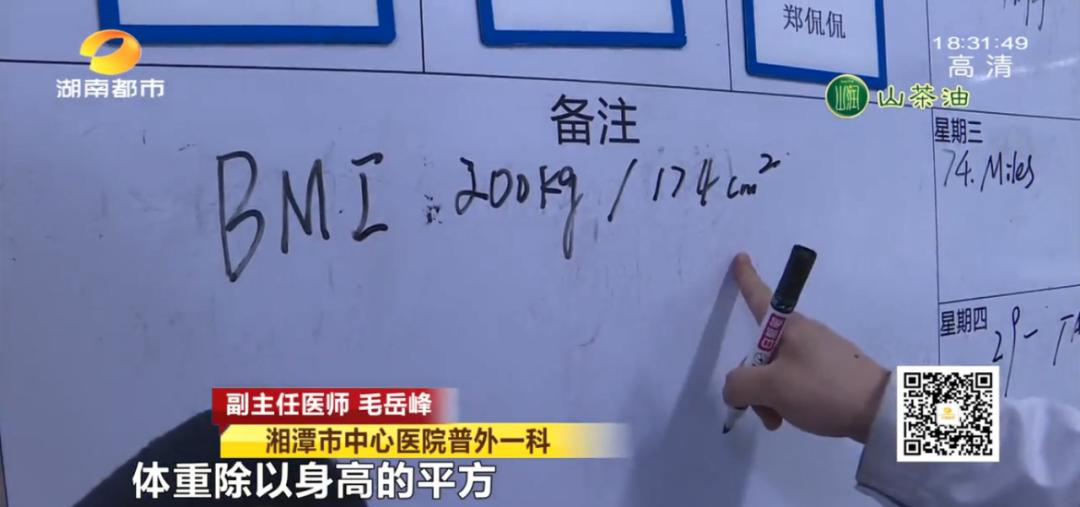 郑侃侃
18:31:49
高清
湖南都市
山润
山茶油
备注
星期三
74. Miles
BMI : 200kg / 174cm²
星期四
29-
副主任医师 毛岳峰
湘潭市中心医院普外一科
体重除以身高的平方